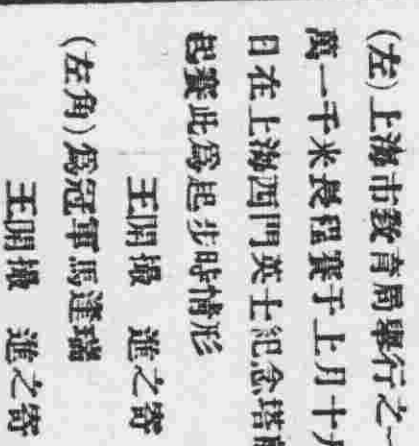 (左)上海市教育局舉行之一
萬一千米長程賽于上月十九
日在上海西門英士紀念塔
起賽此爲起步時情形
王開攝 進之寄
(左角)爲冠軍馬達瑞
王開攝 進之寄